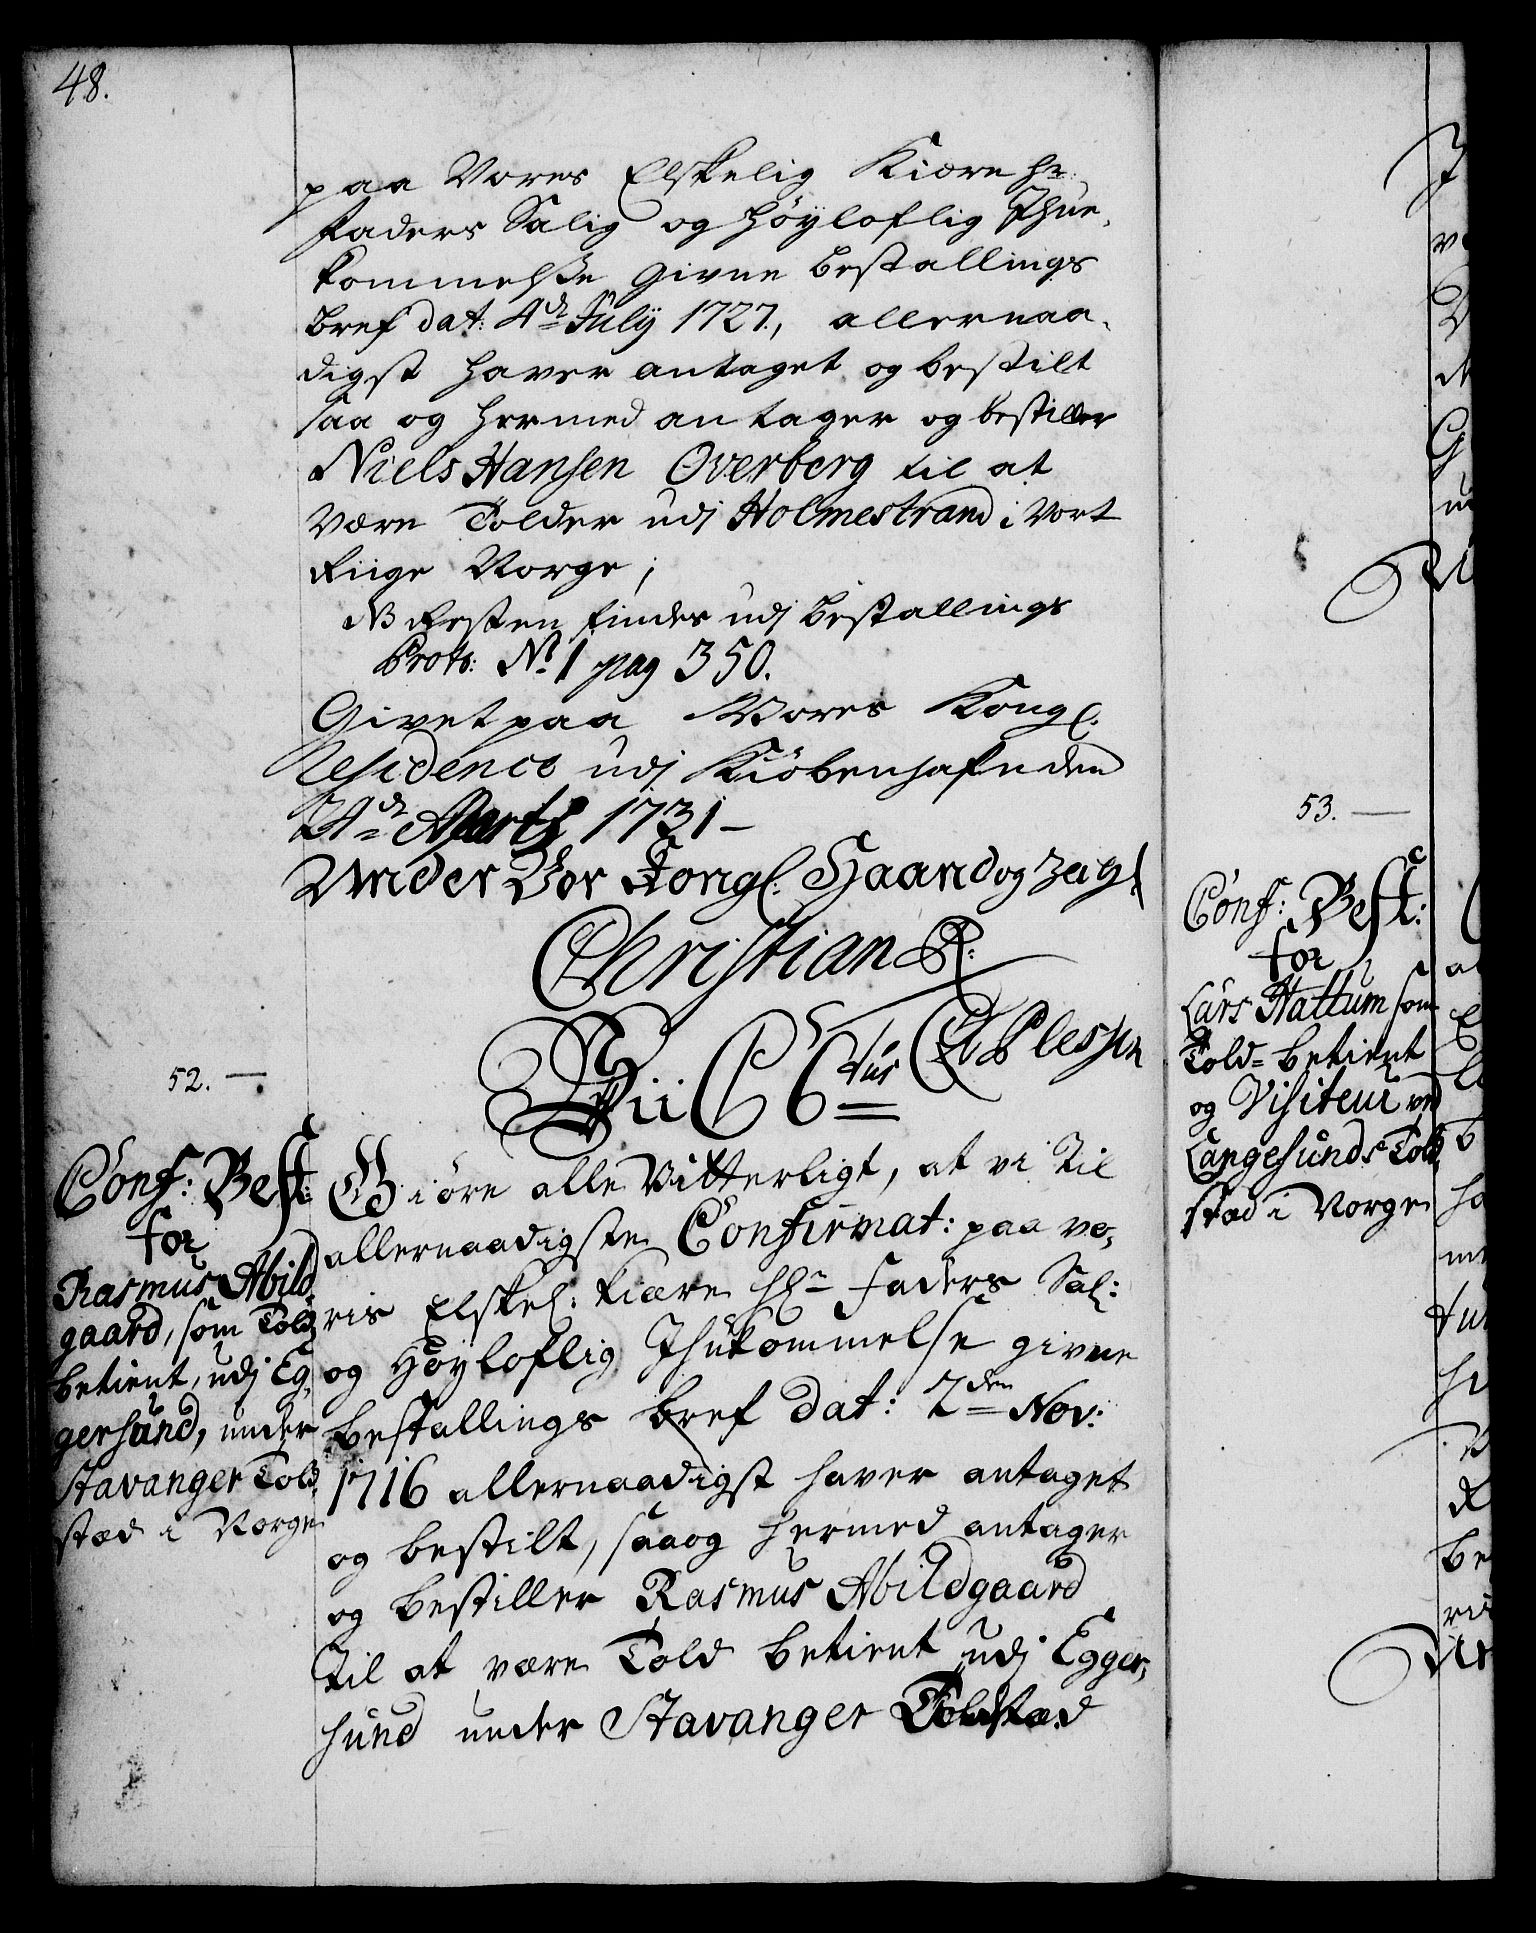 48.
paa Vores Elskelig Kiære Hr:
Faders Salig og Høyloflig Ihue,
kommelse Givne Bestallings
Bref dat: 4de Julÿ 1727., allernaa,
digst haver antaget og bestilt
saa og hermed antager og bestiller
Niels Hansen Overberg til at
være Tolder udj Holmestrand i Vort
Riige Norge;
NB Resten findes udj Bestallings
Prot: No. 1 pag 350.
Givet paa Vores Kongl.
Residence udj Kiöbenhafn den
1731 –
Under Vor Kongl. Haand og Zeigl
Christian R:
C A v Plessen
52. —
Conf: Best:
for
Rasmus Abild,
gaard, som Told
betient, udj Eg,
gersund, under
Stavanger Told,
stæd i Norge
Vii C 6tus
Giöre alle Vitterligt, at vi til
allernaadigste Confirmat: paa vo,
ris Elskel: kiære Hr Faders Sal:
og Høyloflig Ihukommelse givne
bestallings bref dat: 2den Nov:
1716 allernaadigst haver antaget
og bestilt, saa og hermed antager
og bestiller Rasmus Abildgaard
til at være Told betient udj Egger,
sund under Stavanger Toldstæd
53. —
Conf: Best:
for
Lars Hattum som
Told= betient
og Visiteur ved
Langesunds Told,
stæd i Norge